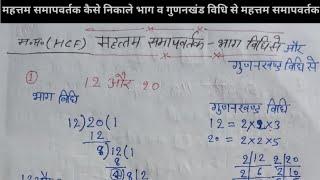 महत्तम समापवर्तक कैसे निकाले भाग व गुणनखंड विधि से महत्तम समापवर्तक
म.स. (HCF) महत्तम समापवर्तक - भाग विधि से और
गुणनखण्ड विधि से
① 12 और 20
भाग विधि
12)20(1
12
8)12(1
8
④)8(2
गुणनखण्ड विधि
12 = 2×2×3
20 = 2×2×5
2|12 2|20
2|6 2|10